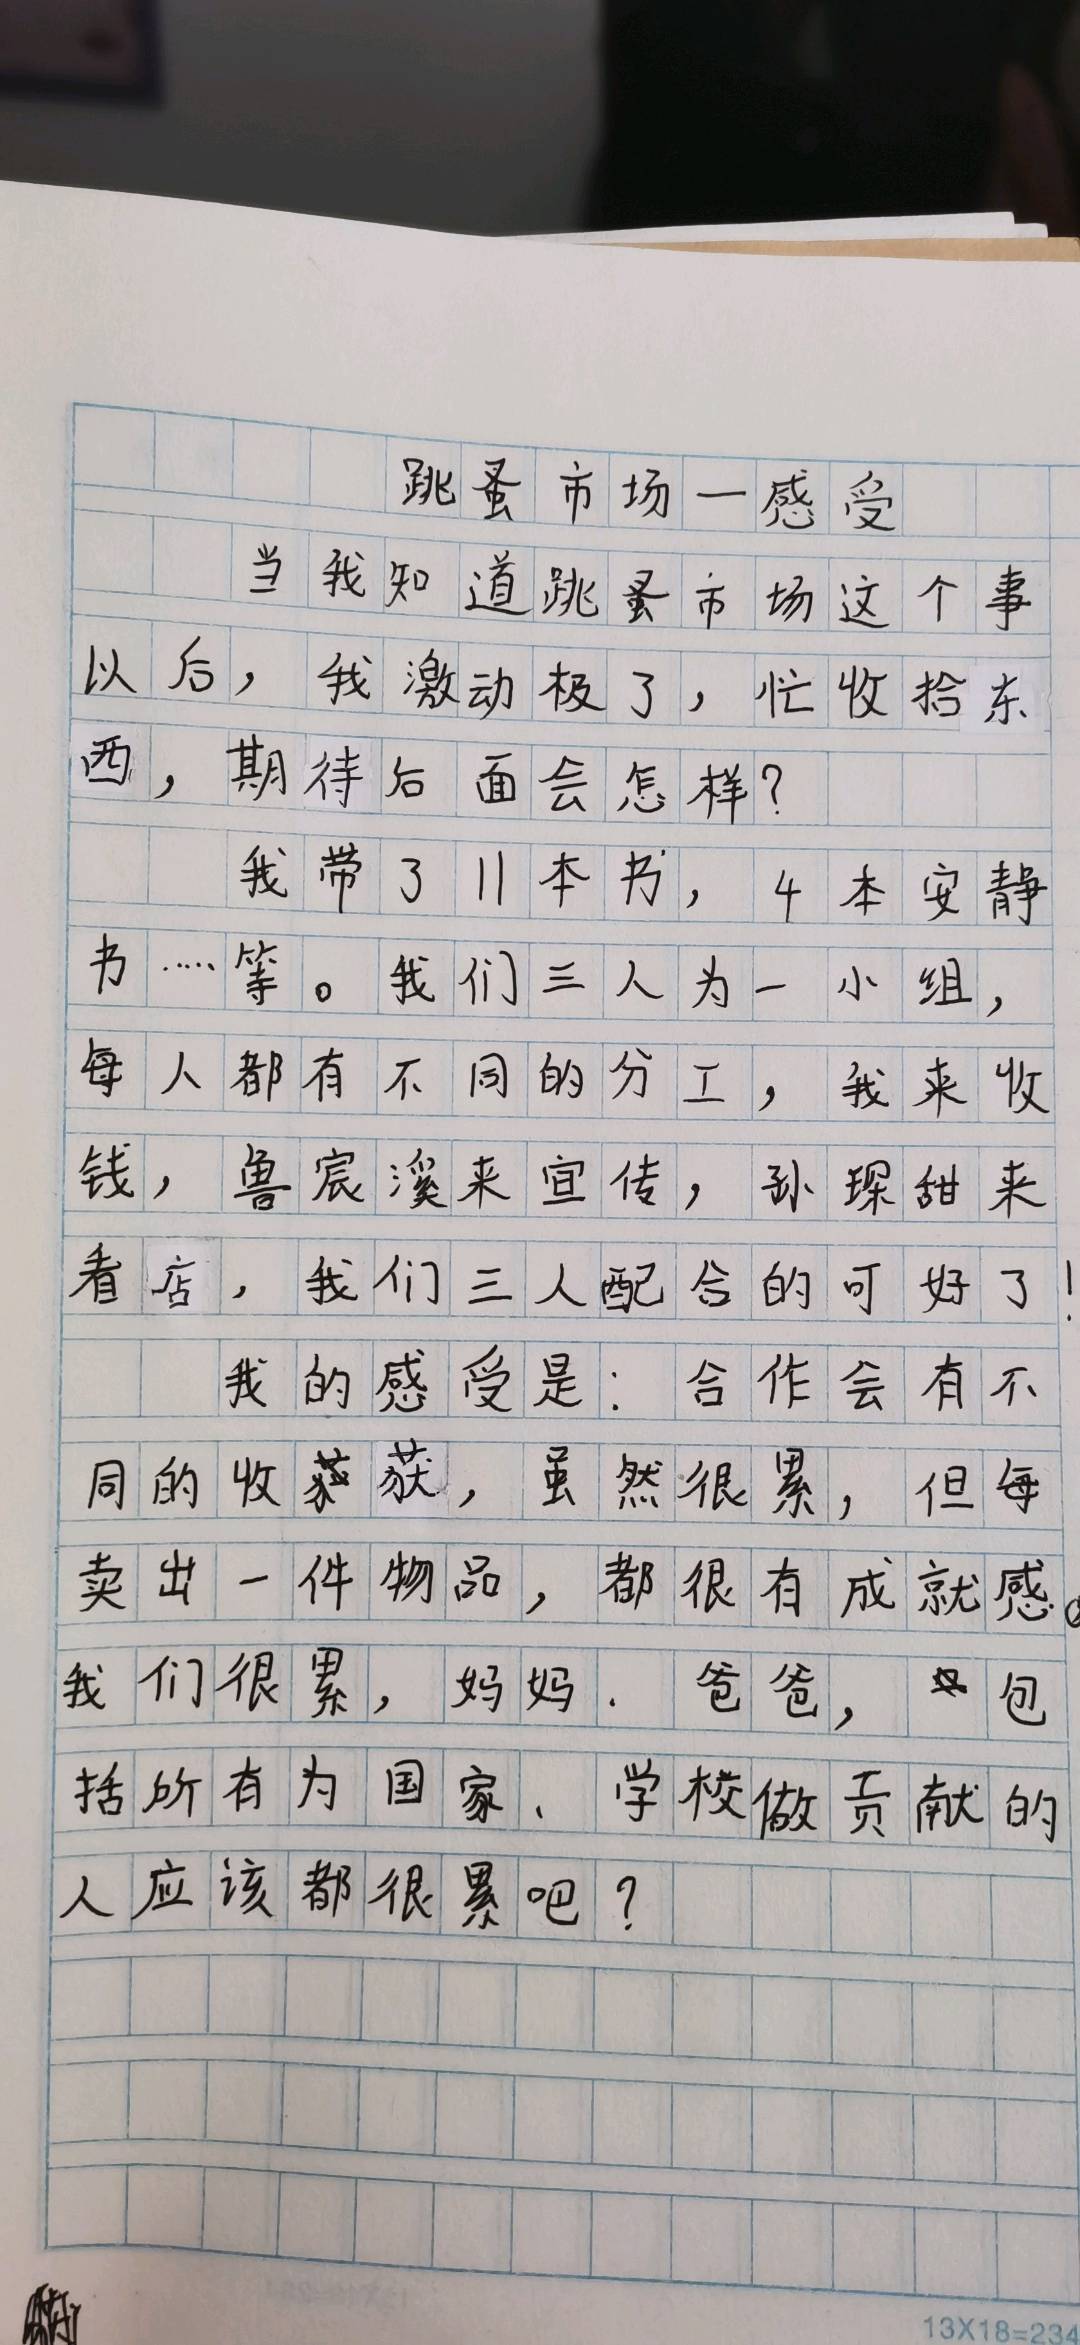 跳蚤市场一感受
当我知道跳蚤市场这个事
以后，我激动极了，忙收拾东
西，期待后面会怎样？
我带了11本书，4本安静
书……等。我们三人为一小组，
每人都有不同的分工，我来收
钱，鲁宸溪来宣传，孙琛甜来
看店，我们三人配合的可好了！
我的感受是：合作会有不
同的收获，虽然很累，但每
卖出一件物品，都很有成就感。
我们很累，妈妈、爸爸，包
括所有为国家、学校做贡献的
人应该都很累吧？
13X18=234